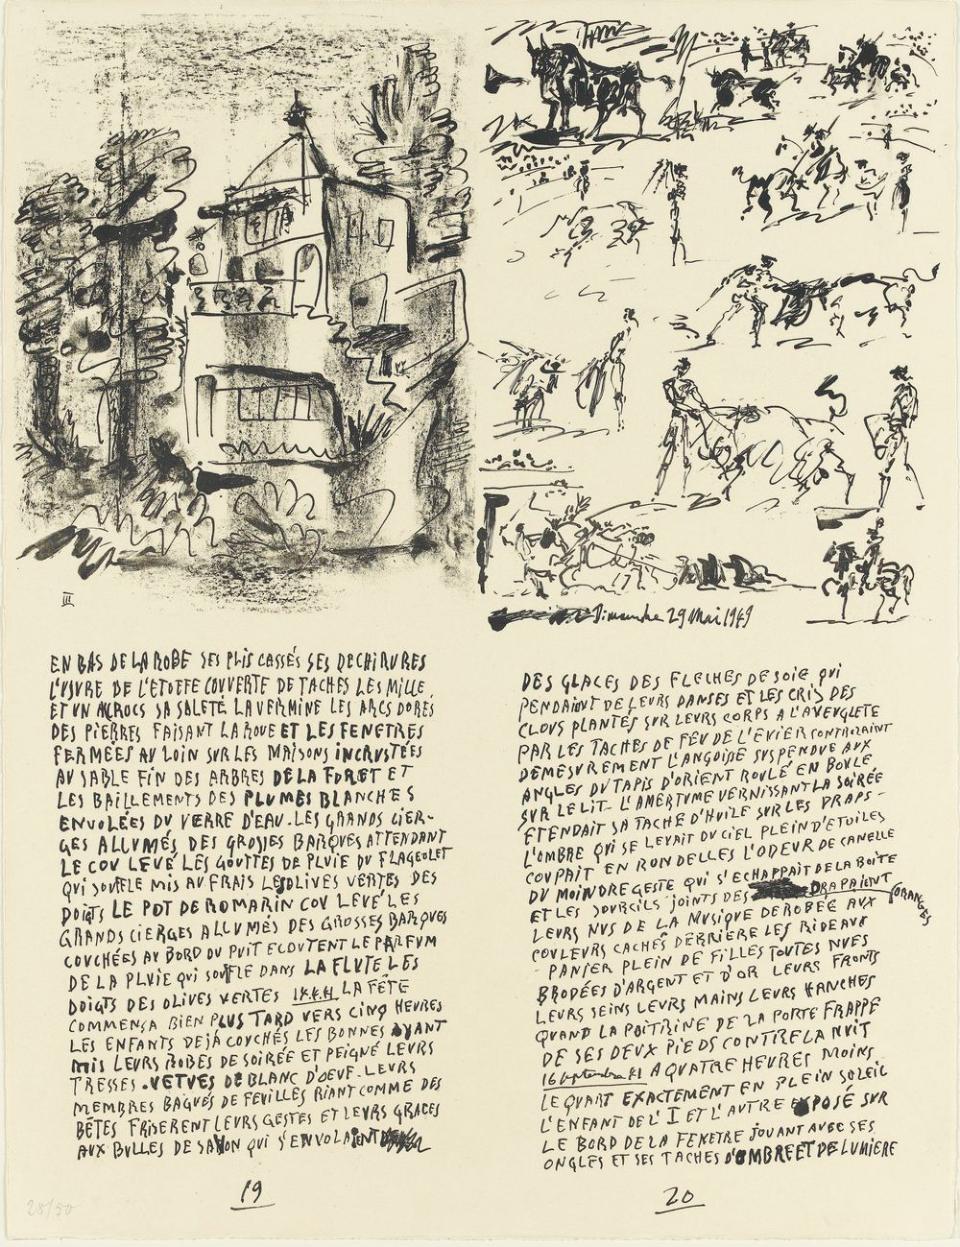 III
Dimanche 29 Mai 1949
EN BAS DE LA ROBE SES PLIS CASSÉS SES DECHIRURES
L'USURE DE L'ETOFFE COUVERTE DE TACHES LES MILLE
ET UN ACCROCS SA SALETÉ LA VERMINE LES ARCS DORÉS
DES PIERRES FAISANT LA ROUE ET LES FENETRES
FERMEES AU LOIN SUR LES MAISONS INCRUSTÉES
AU SABLE FIN DES ARBRES DE LA FORET ET
LES BAILLEMENTS DES PLUMES BLANCHES
ENVOLÉES DU VERRE D'EAU. LES GRANDS CIER-
GES ALLUMÉS DES GROSSES BARQUES ATTENDANT
LE COU LEVÉ LES GOUTTES DE PLUIE DU FLAGEOLET
QUI SOUFFLE MIS AU FRAIS LES OLIVES VERTES DES
DOIGTS LE POT DE ROMARIN COU LEVÉ LES
GRANDS CIERGES ALLUMÉS DES GROSSES BARQUES
COUCHÉES AU BORD DU PUIT ECOUTENT LE PARFUM
DE LA PLUIE QUI SOUFFLE DANS LA FLUTE LES
DOIGTS DES OLIVES VERTES LA FÊTE
COMMENSA BIEN PLUS TARD VERS CINQ HEURES
LES ENFANTS DEJÀ COUCHÉS LES BONNES AYANT
MIS LEURS ROBES DE SOIRÉE ET PEIGNÉ LEURS
TRESSES. VETUES DE BLANC D'OEUF. LEURS
MEMBRES BAGUÉS DE FEUILLES RIANT COMME DES
BÊTES FRISERENT LEURS GESTES ET LEURS GRACES
AUX BULLES DE SAVON QUI S'ENVOLAIENT
19
DES GLACES DES FLECHES DE SOIE QUI
PENDAIENT DE LEURS DANSES ET LES CRIS DES
CLOUS PLANTÉS SUR LEURS CORPS A L'AVEUGLETE
PAR LES TACHES DE FEU DE L'EVIER CONTRARIANT
DEMESUREMENT L'ANGOISE SUSPENDUE AUX
ANGLES DU TAPIS D'ORIENT ROULÉ EN BOULE
SUR LE LIT - L'AMERTUME VERNISSANT LA SOIRÉE
ETENDAIT SA TACHE D'HUILE SUR LES DRAPS -
L'OMBRE QUI SE LEVAIT DU CIEL PLEIN D'ETOILES
COUPAIT EN RONDELLES L'ODEUR DE CANELLE
DU MOINDRE GESTE QUI S'ECHAPPAIT DE LA BOITE
ET LES SOURCILS JOINTS DES ORANGES DRAPAIENT
LEURS NUS DE LA MUSIQUE DEROBÉE AUX
COULEURS CACHÉS DERRIERE LES RIDEAUX
- PANIER PLEIN DE FILLES TOUTES NUES
BRODÉES D'ARGENT ET D'OR LEURS FRONTS
LEURS SEINS LEURS MAINS LEURS HANCHES
QUAND LA POITRINE DE LA PORTE FRAPPE
DE SES DEUX PIEDS CONTRE LA NUIT
16 Septembre 41 A QUATRE HEURES MOINS
LE QUART EXACTEMENT EN PLEIN SOLEIL
L'ENFANT DE L'I ET L'AUTRE EXPOSÉ SUR
LE BORD DE LA FENETRE JOUANT AVEC SES
ONGLES ET SES TACHES D'OMBRE ET DE LUMIERE
20
28/50